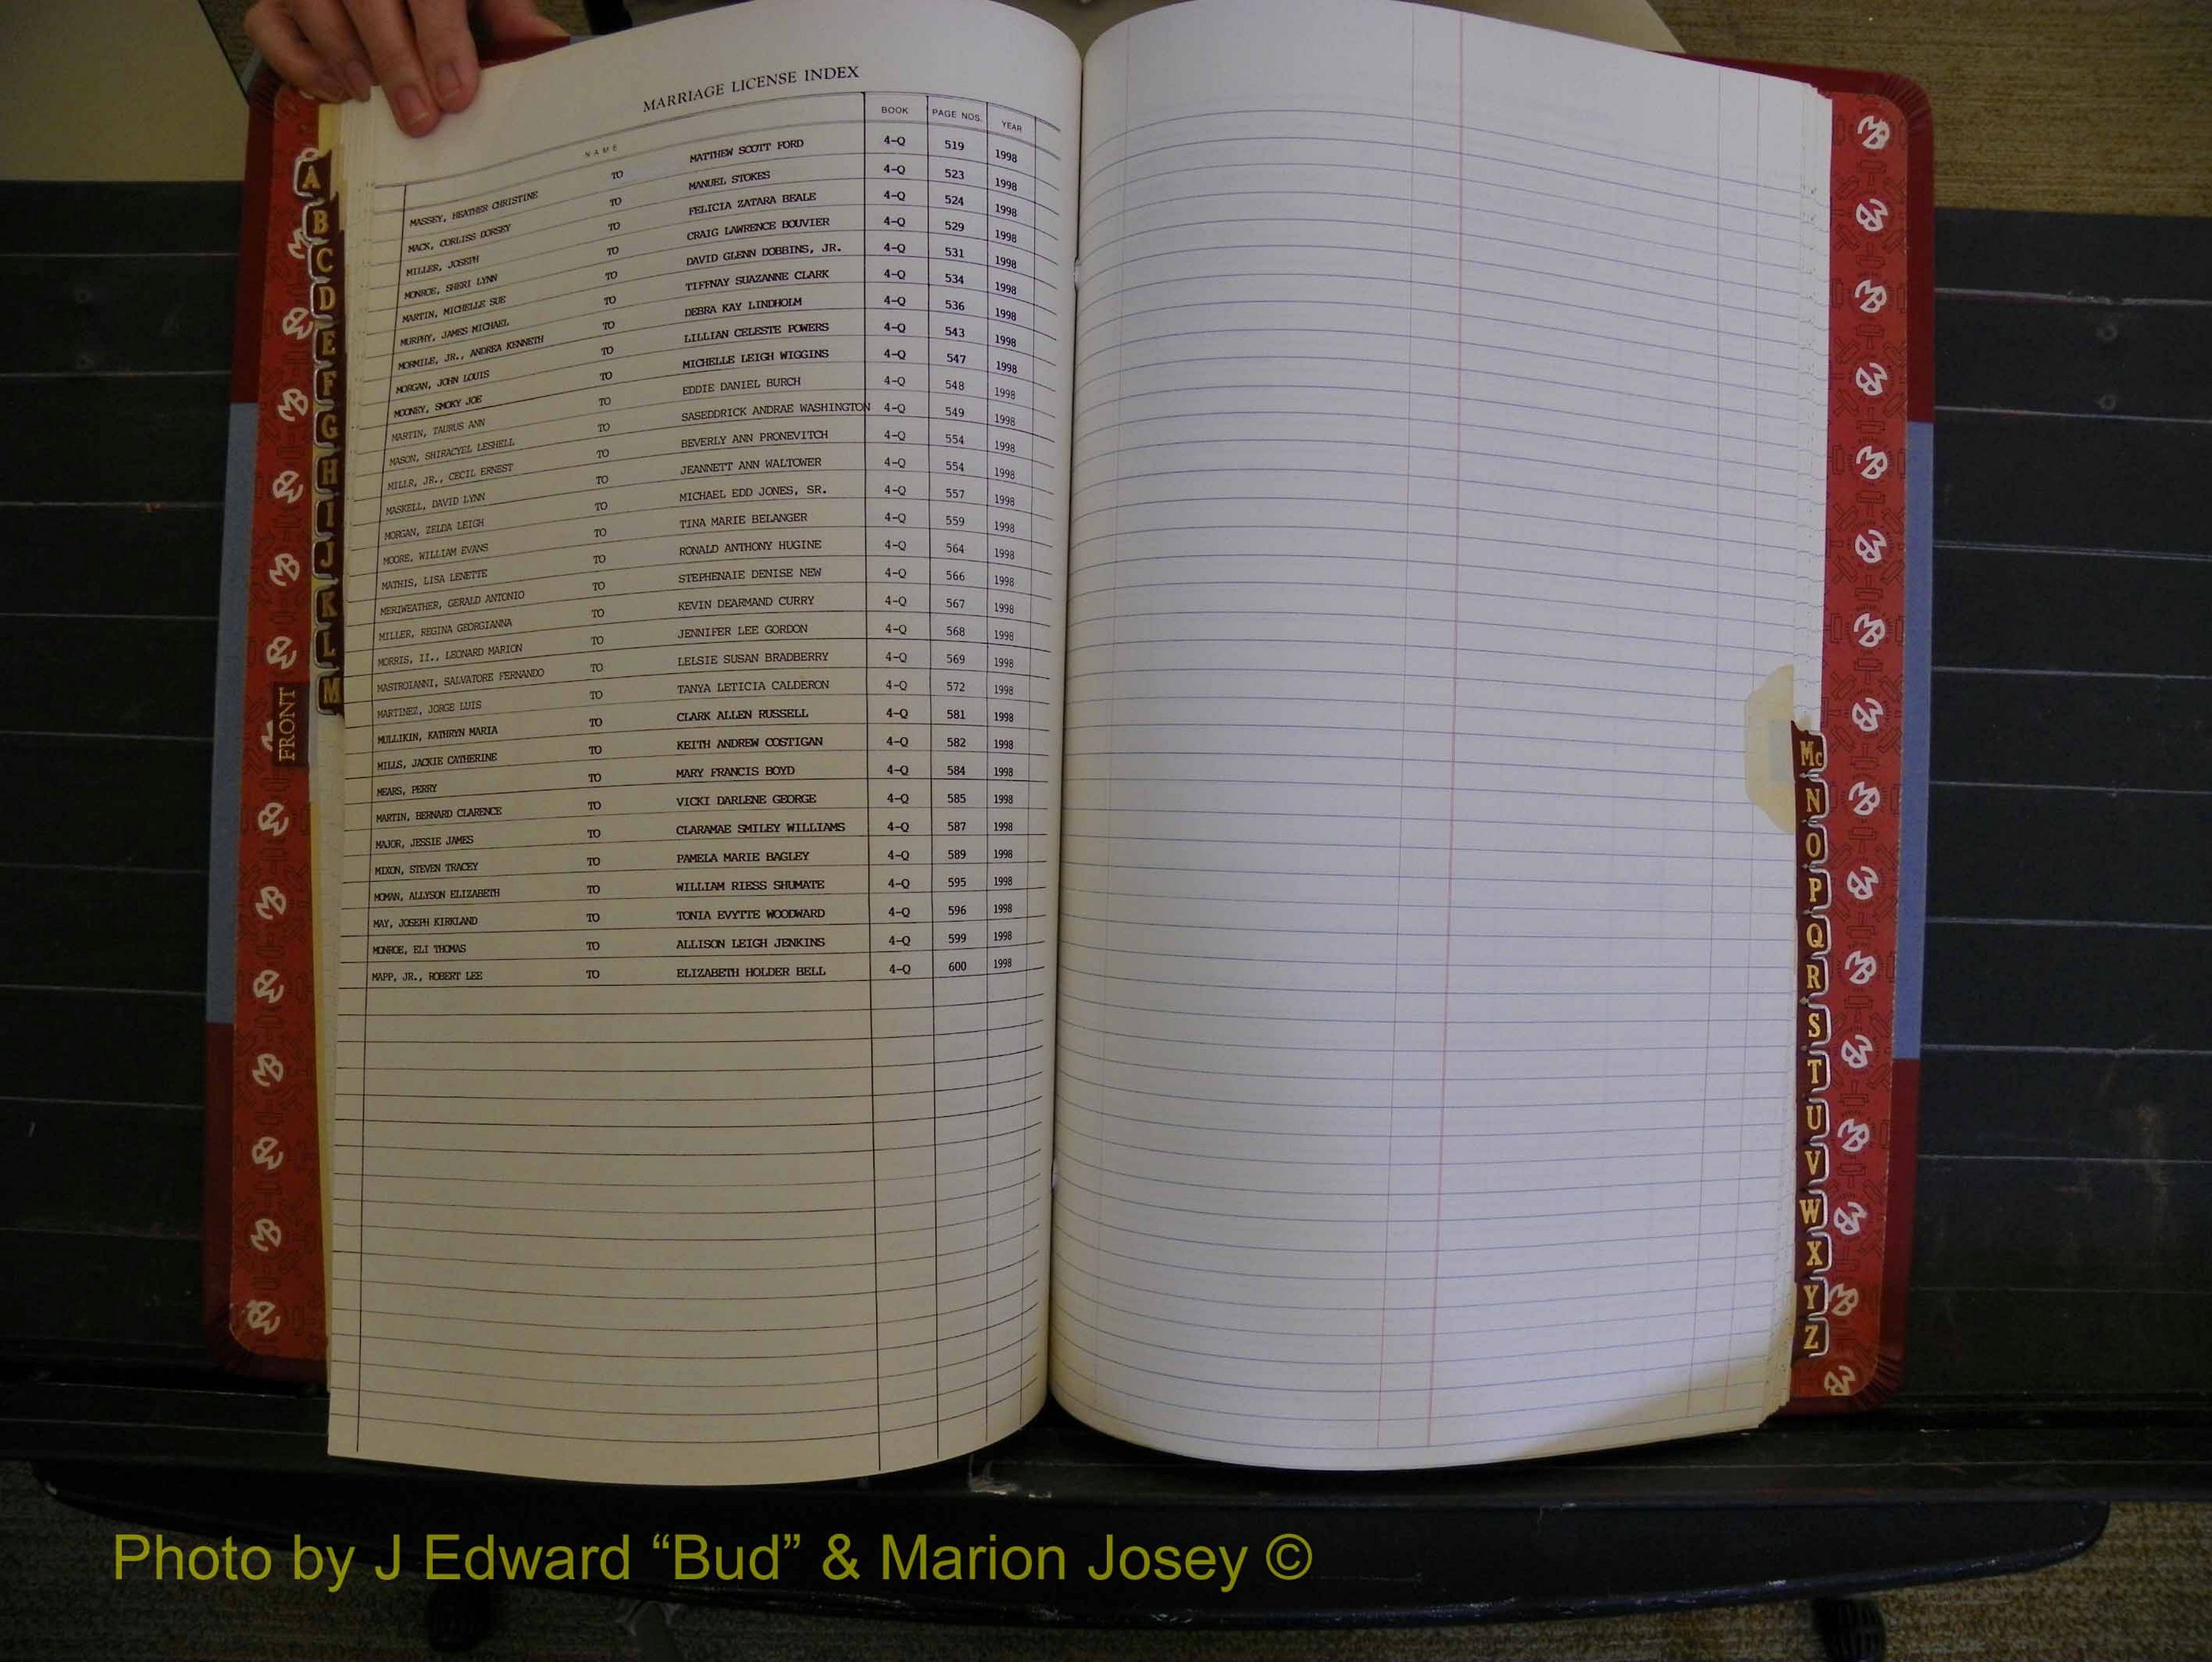 MARRIAGE LICENSE INDEX
NAME BOOK PAGE NOS. YEAR
MASSEY, HEATHER CHRISTINE TO MATTHEW SCOTT FORD 4-Q 519 1998
MACK, CORLISS DORSEY TO MANUEL STOKES 4-Q 523 1998
MILLER, JOSEPH TO FELICIA ZATARA BEALE 4-Q 524 1998
MONROE, SHERI LYNN TO CRAIG LAWRENCE BOUVIER 4-Q 529 1998
MARTIN, MICHELLE SUE TO DAVID GLENN DOBBINS, JR. 4-Q 531 1998
MURPHY, JAMES MICHAEL TO TIFFNAY SUAZANNE CLARK 4-Q 534 1998
MORMILE, JR., ANDREA KENNETH TO DEBRA KAY LINDHOLM 4-Q 536 1998
MORGAN, JOHN LOUIS TO LILLIAN CELESTE POWERS 4-Q 543 1998
MOONEY, SMOKY JOE TO MICHELLE LEIGH WIGGINS 4-Q 547 1998
MARTIN, TAURUS ANN TO EDDIE DANIEL BURCH 4-Q 548 1998
MASON, SHIRACYEL LESHELL TO SASEDDRICK ANDRAE WASHINGTON 4-Q 549 1998
MILLR, JR., CECIL ERNEST TO BEVERLY ANN PRONEVITCH 4-Q 554 1998
MASKELL, DAVID LYNN TO JEANNETT ANN WALTOWER 4-Q 554 1998
MORGAN, ZELDA LEIGH TO MICHAEL EDD JONES, SR. 4-Q 557 1998
MOORE, WILLIAM EVANS TO TINA MARIE BELANGER 4-Q 559 1998
MATHIS, LISA LENETTE TO RONALD ANTHONY HUGINE 4-Q 564 1998
MERIWEATHER, GERALD ANTONIO TO STEPHENAIE DENISE NEW 4-Q 566 1998
MILLER, REGINA GEORGIANNA TO KEVIN DEARMAND CURRY 4-Q 567 1998
MORRIS, II., LEONARD MARION TO JENNIFER LEE GORDON 4-Q 568 1998
MASTROIANNI, SALVATORE FERNANDO TO LELSIE SUSAN BRADBERRY 4-Q 569 1998
MARTINEZ, JORGE LUIS TO TANYA LETICIA CALDERON 4-Q 572 1998
MULLIKIN, KATHRYN MARIA TO CLARK ALLEN RUSSELL 4-Q 581 1998
MILLS, JACKIE CATHERINE TO KEITH ANDREW COSTIGAN 4-Q 582 1998
MEARS, PERRY TO MARY FRANCIS BOYD 4-Q 584 1998
MARTIN, BERNARD CLARENCE TO VICKI DARLENE GEORGE 4-Q 585 1998
MAJOR, JESSIE JAMES TO CLARAMAE SMILEY WILLIAMS 4-Q 587 1998
MIXON, STEVEN TRACEY TO PAMELA MARIE BAGLEY 4-Q 589 1998
MOMAN, ALLYSON ELIZABETH TO WILLIAM RIESS SHUMATE 4-Q 595 1998
MAY, JOSEPH KIRKLAND TO TONIA EVYTTE WOODWARD 4-Q 596 1998
MONROE, ELI THOMAS TO ALLISON LEIGH JENKINS 4-Q 599 1998
MAPP, JR., ROBERT LEE TO ELIZABETH HOLDER BELL 4-Q 600 1998
A
B
C
D
E
F
G
H
I
J
K
L
M
FRONT
Mc
N
O
P
Q
R
S
T
U
V
W
X
Y
Z
Photo by J Edward “Bud” & Marion Josey ©